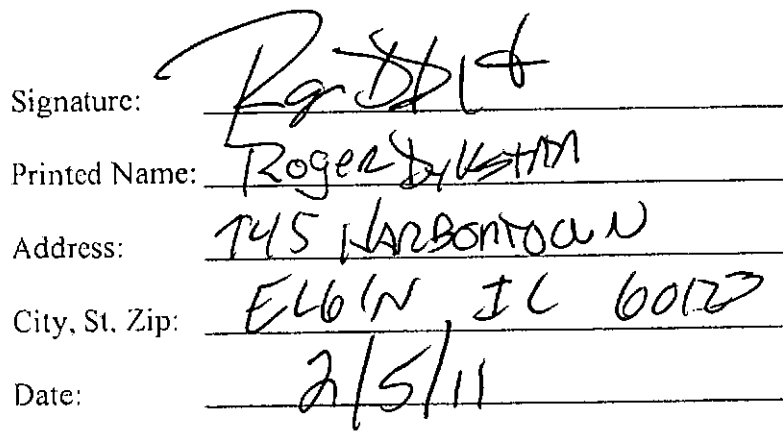 Signature:
Printed Name: Roger Dykstra
Address: 745 HARBORTOWN
City, St. Zip: ELGIN IL 60123
Date: 2/5/11